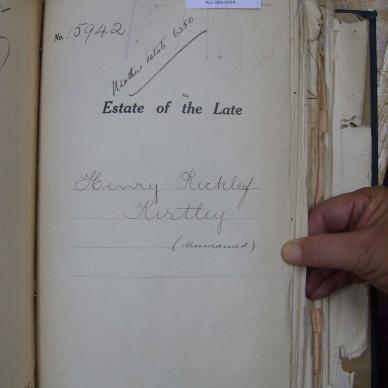 ALL GEN DATA
No. 15942
Mothers estate 6250
Estate of the Late
Henry Ricklef
Kirtley
(Unmarried)